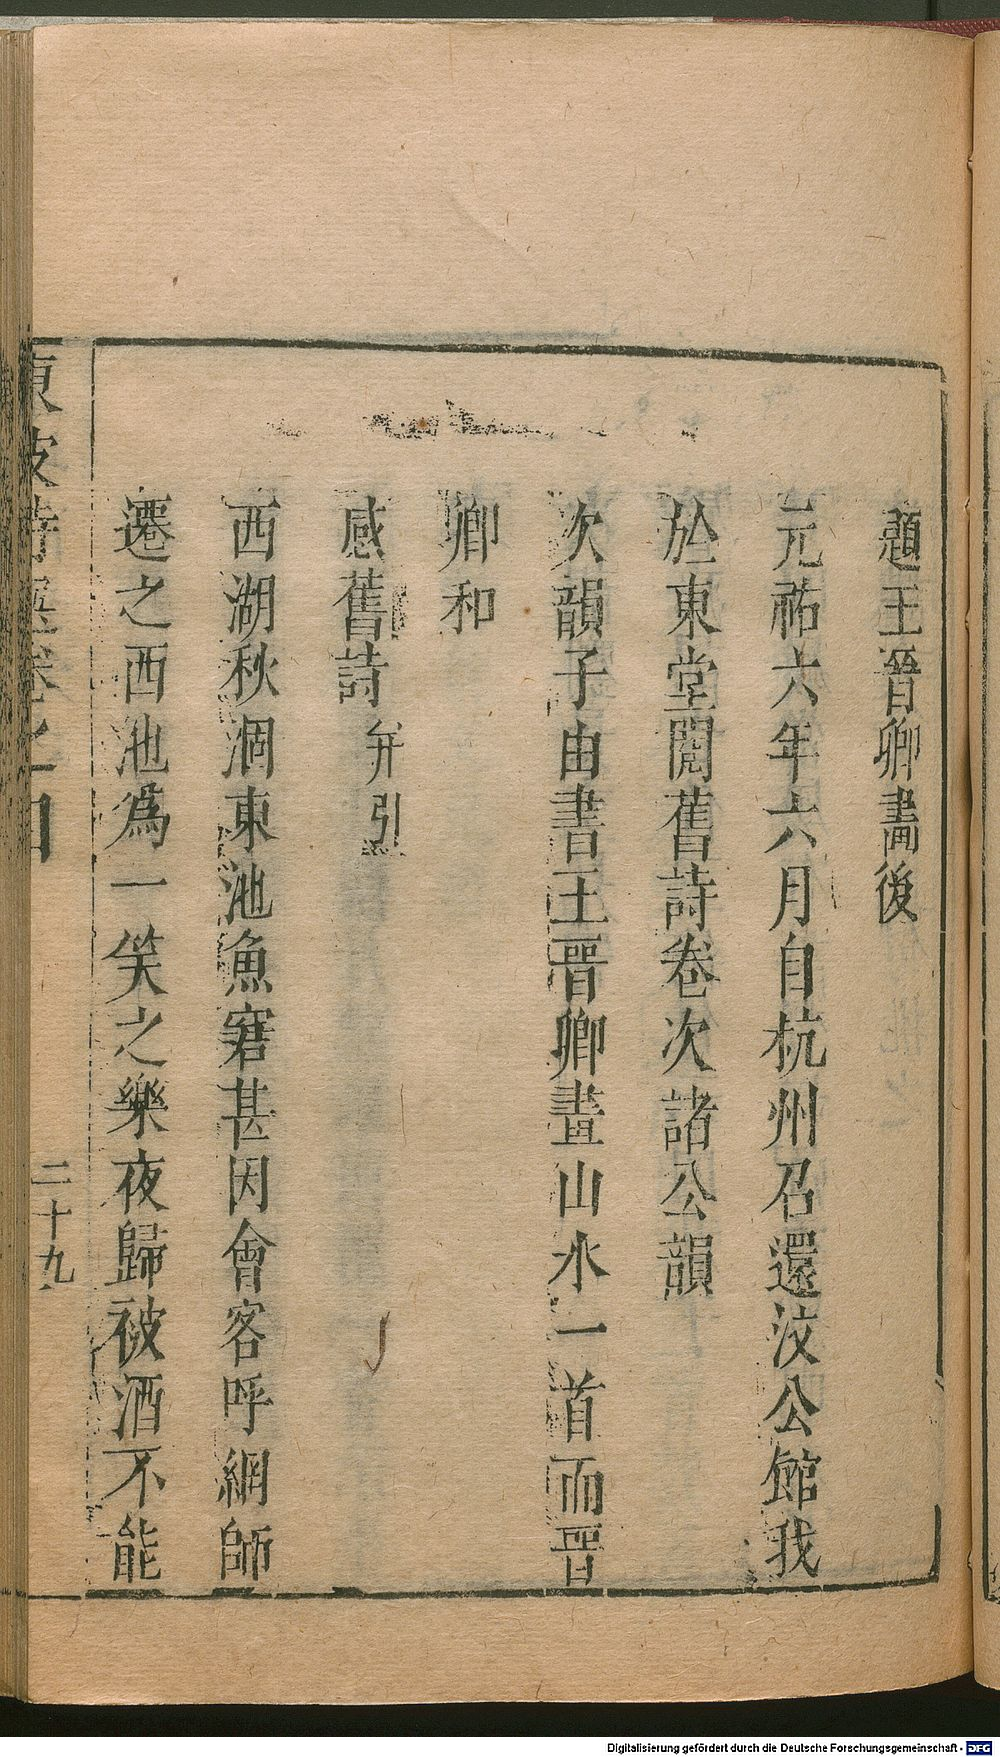 題王晉卿畵後
元祐六年六月自杭州召還汶公館我
於東堂閱舊詩卷次諸公韻
次韻子由書王晉卿畫山水一首而晉
卿和
感舊詩 并引
西湖秋涸東池魚窘甚因會客呼網師
遷之西池爲一笑之樂夜歸被酒不能
東坡詩選卷之四
二十九
Digitalisierung gefördert durch die Deutsche Forschungsgemeinschaft - DFG